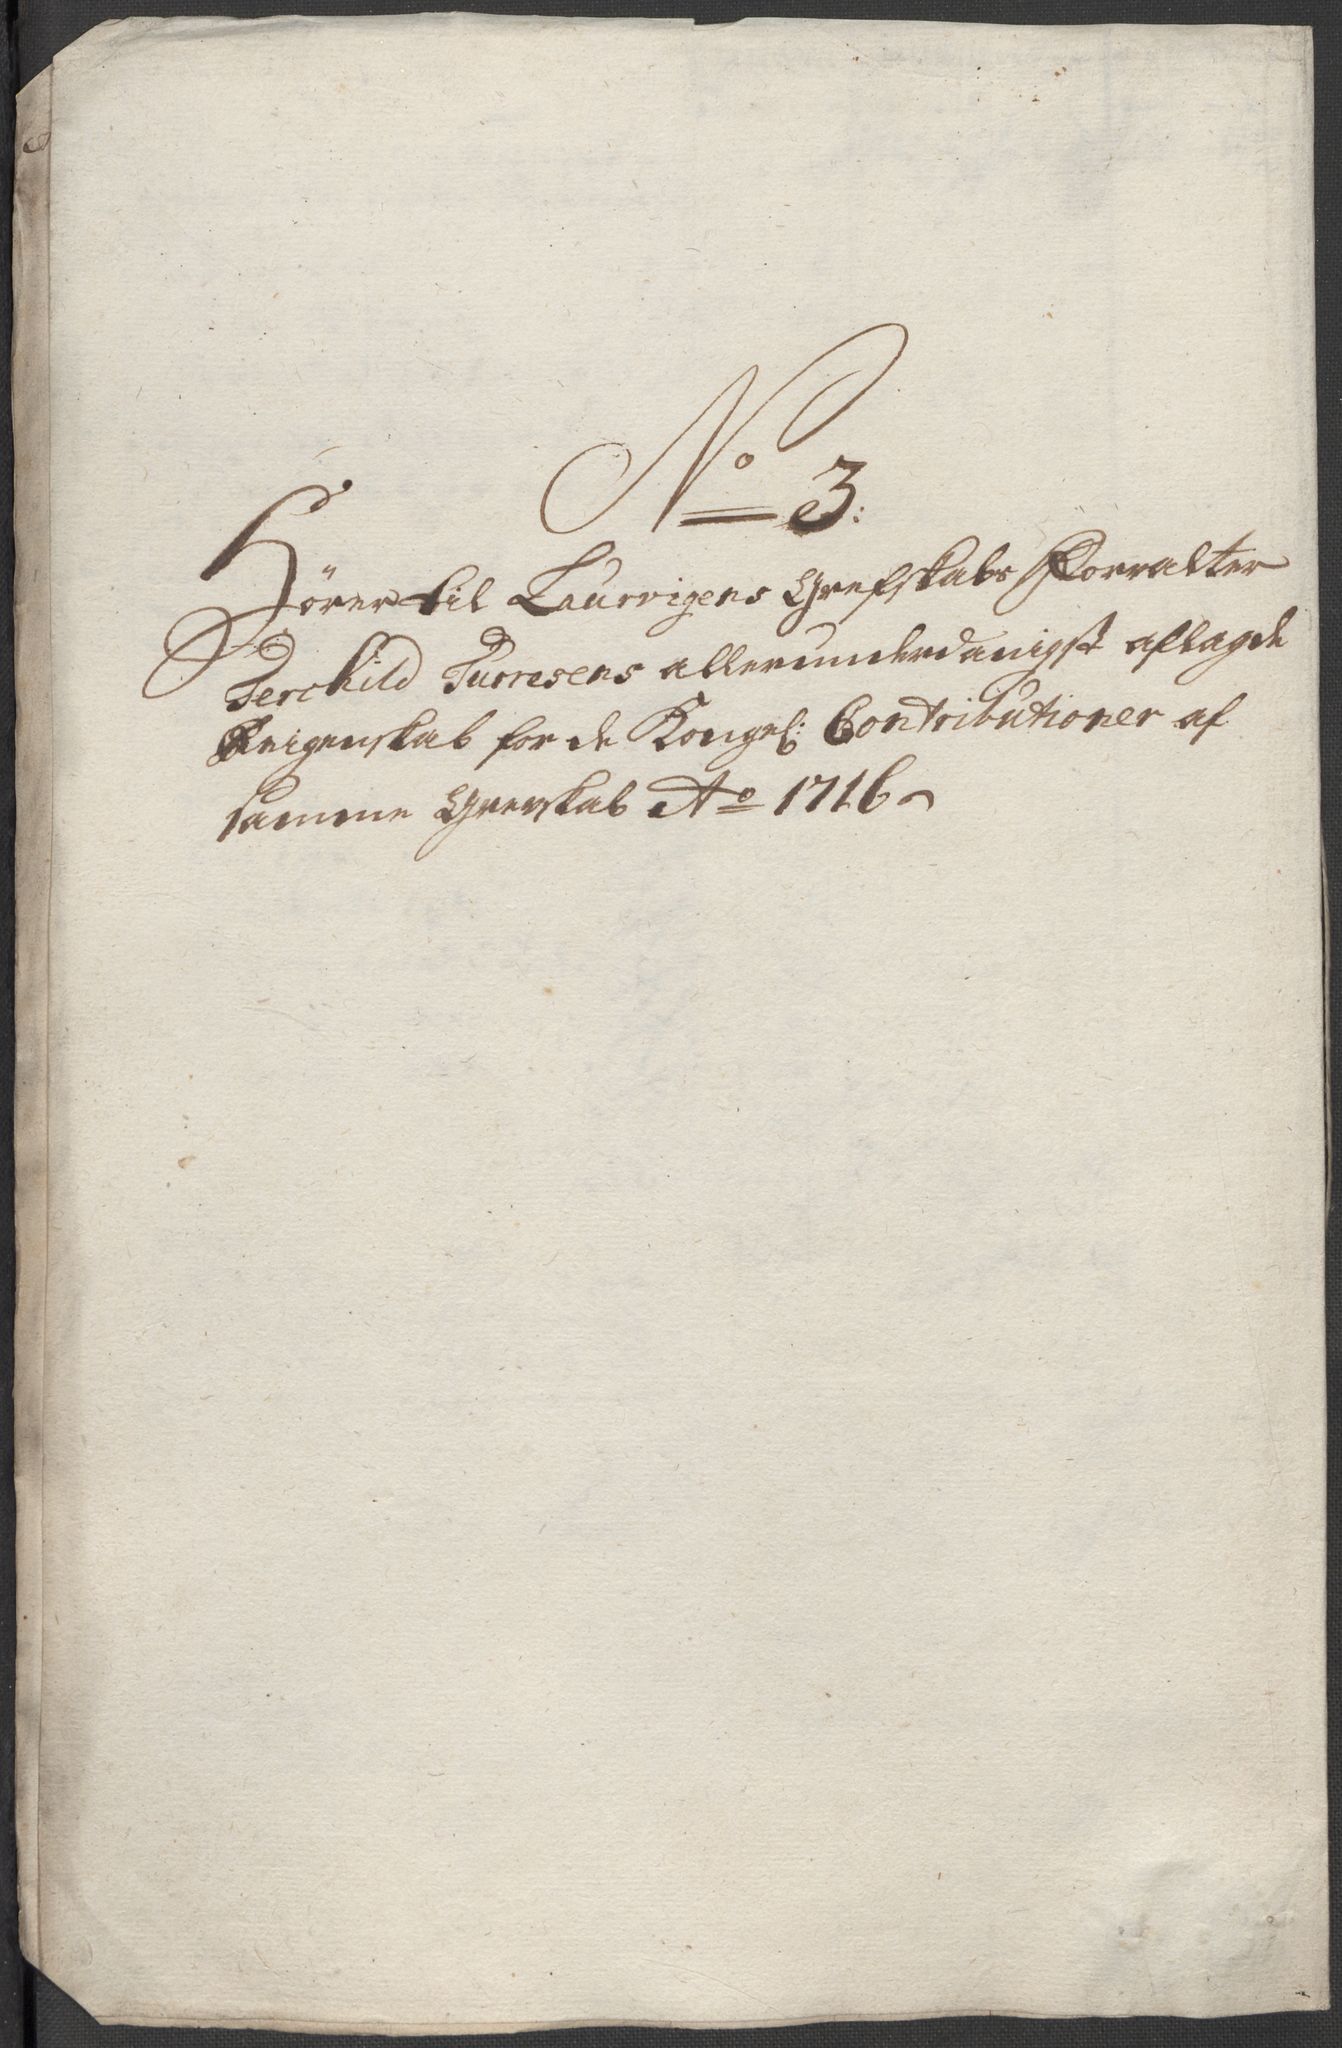 No 3:
Hörer til Laurvigens Grefskabs Forvalter
Terchild Turresens allerunderdanigst aflagde
Reigenskab for de Kongel: Contributioner af
samme Grefskab Ao 1716